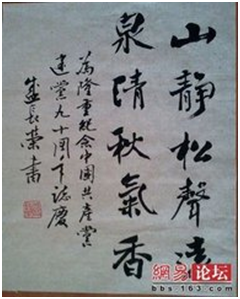 山靜松聲遠
泉清秋氣香
為隆重紀念中國共產黨
建黨九十周年誌慶
盛長榮書
網易 论坛
bbs.163.com